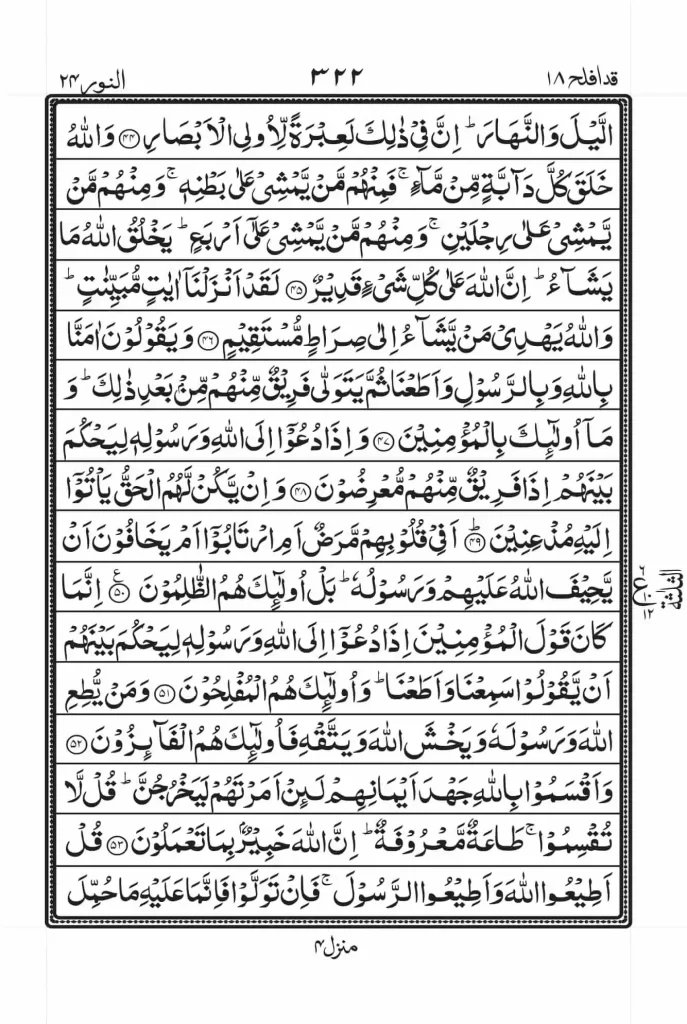 قد افلح ١٨ ٣٢٢ النور ٢٤
الَّيۡلَ وَالنَّهَارَ ؕ اِنَّ فِىۡ ذٰ لِكَ لَعِبۡرَةً لِّاُولِى الۡاَبۡصَارِ ﴿۴۴﴾ وَاللّٰهُ
خَلَقَ كُلَّ دَآبَّةٍ مِّنۡ مَّآءٍ‌ۚ فَمِنۡهُمۡ مَّنۡ يَّمۡشِىۡ عَلٰى بَطۡنِهٖ‌ۚ وَمِنۡهُمۡ مَّنۡ
يَّمۡشِىۡ عَلٰى رِجۡلَيۡنِ‌ۚ وَمِنۡهُمۡ مَّنۡ يَّمۡشِىۡ عَلٰٓى اَرۡبَعٍ‌ؕ يَخۡلُقُ اللّٰهُ مَا
يَشَآءُ‌ؕ اِنَّ اللّٰهَ عَلٰى كُلِّ شَىۡءٍ قَدِيۡرٌ ﴿۴۵﴾ لَـقَدۡ اَنۡزَلۡنَاۤ اٰيٰتٍ مُّبَيِّنٰتٍ‌ؕ
وَ اللّٰهُ يَهۡدِىۡ مَنۡ يَّشَآءُ اِلٰى صِرَاطٍ مُّسۡتَقِيۡمٍ ﴿۴۶﴾ وَيَقُوۡلُوۡنَ اٰمَنَّا
بِاللّٰهِ وَبِالرَّسُوۡلِ وَاَطَعۡنَا ثُمَّ يَتَوَلّٰى فَرِيۡقٌ مِّنۡهُمۡ مِّنۡۢ بَعۡدِ ذٰلِكَ‌ؕ وَ
مَاۤ اُولٰٓـئِكَ بِالۡمُؤۡمِنِيۡنَ ﴿۴۷﴾ وَاِذَا دُعُوۡۤا اِلَى اللّٰهِ وَرَسُوۡلِهٖ لِيَحۡكُمَ
بَيۡنَهُمۡ اِذَا فَرِيۡقٌ مِّنۡهُمۡ مُّعۡرِضُوۡنَ ﴿۴۸﴾ وَاِنۡ يَّكُنۡ لَّهُمُ الۡحَـقُّ يَاۡتُوۡۤا
اِلَيۡهِ مُذۡعِنِيۡنَؕ ﴿۴۹﴾ اَفِىۡ قُلُوۡبِهِمۡ مَّرَضٌ اَمِ ارۡتَابُوۡۤا اَمۡ يَخَافُوۡنَ اَنۡ
يَّحِيۡفَ اللّٰهُ عَلَيۡهِمۡ وَرَسُوۡلُهٗ‌ؕ بَلۡ اُولٰٓـئِكَ هُمُ الظّٰلِمُوۡنَ ﴿۵۰﴾ ع اِنَّمَا
٦ ع ١٠ ١٢ الثلثة
كَانَ قَوۡلَ الۡمُؤۡمِنِيۡنَ اِذَا دُعُوۡۤا اِلَى اللّٰهِ وَرَسُوۡلِهٖ لِيَحۡكُمَ بَيۡنَهُمۡ
اَنۡ يَّقُوۡلُوۡا سَمِعۡنَا وَاَطَعۡنَا‌ؕ وَاُولٰٓـئِكَ هُمُ الۡمُفۡلِحُوۡنَ ﴿۵۱﴾ وَمَنۡ يُّطِعِ
اللّٰهَ وَرَسُوۡلَهٗ وَيَخۡشَ اللّٰهَ وَيَتَّقۡهِ فَاُولٰٓـئِكَ هُمُ الۡفَآئِزُوۡنَ ﴿۵۲﴾
وَاَقۡسَمُوۡا بِاللّٰهِ جَهۡدَ اَيۡمَانِهِمۡ لَـئِنۡ اَمَرۡتَهُمۡ لَيَخۡرُجُنَّ‌ؕ قُلْ لَّا
تُقۡسِمُوۡا‌ۚ طَاعَةٌ مَّعۡرُوۡفَةٌ‌ ؕ اِنَّ اللّٰهَ خَبِيۡرٌۢ بِمَا تَعۡمَلُوۡنَ ﴿۵۳﴾ قُلۡ
اَطِيۡعُوا اللّٰهَ وَاَطِيۡعُوا الرَّسُوۡلَ‌ۚ فَاِنۡ تَوَلَّوۡا فَاِنَّمَا عَلَيۡهِ مَا حُمِّلَ
منزل ٤